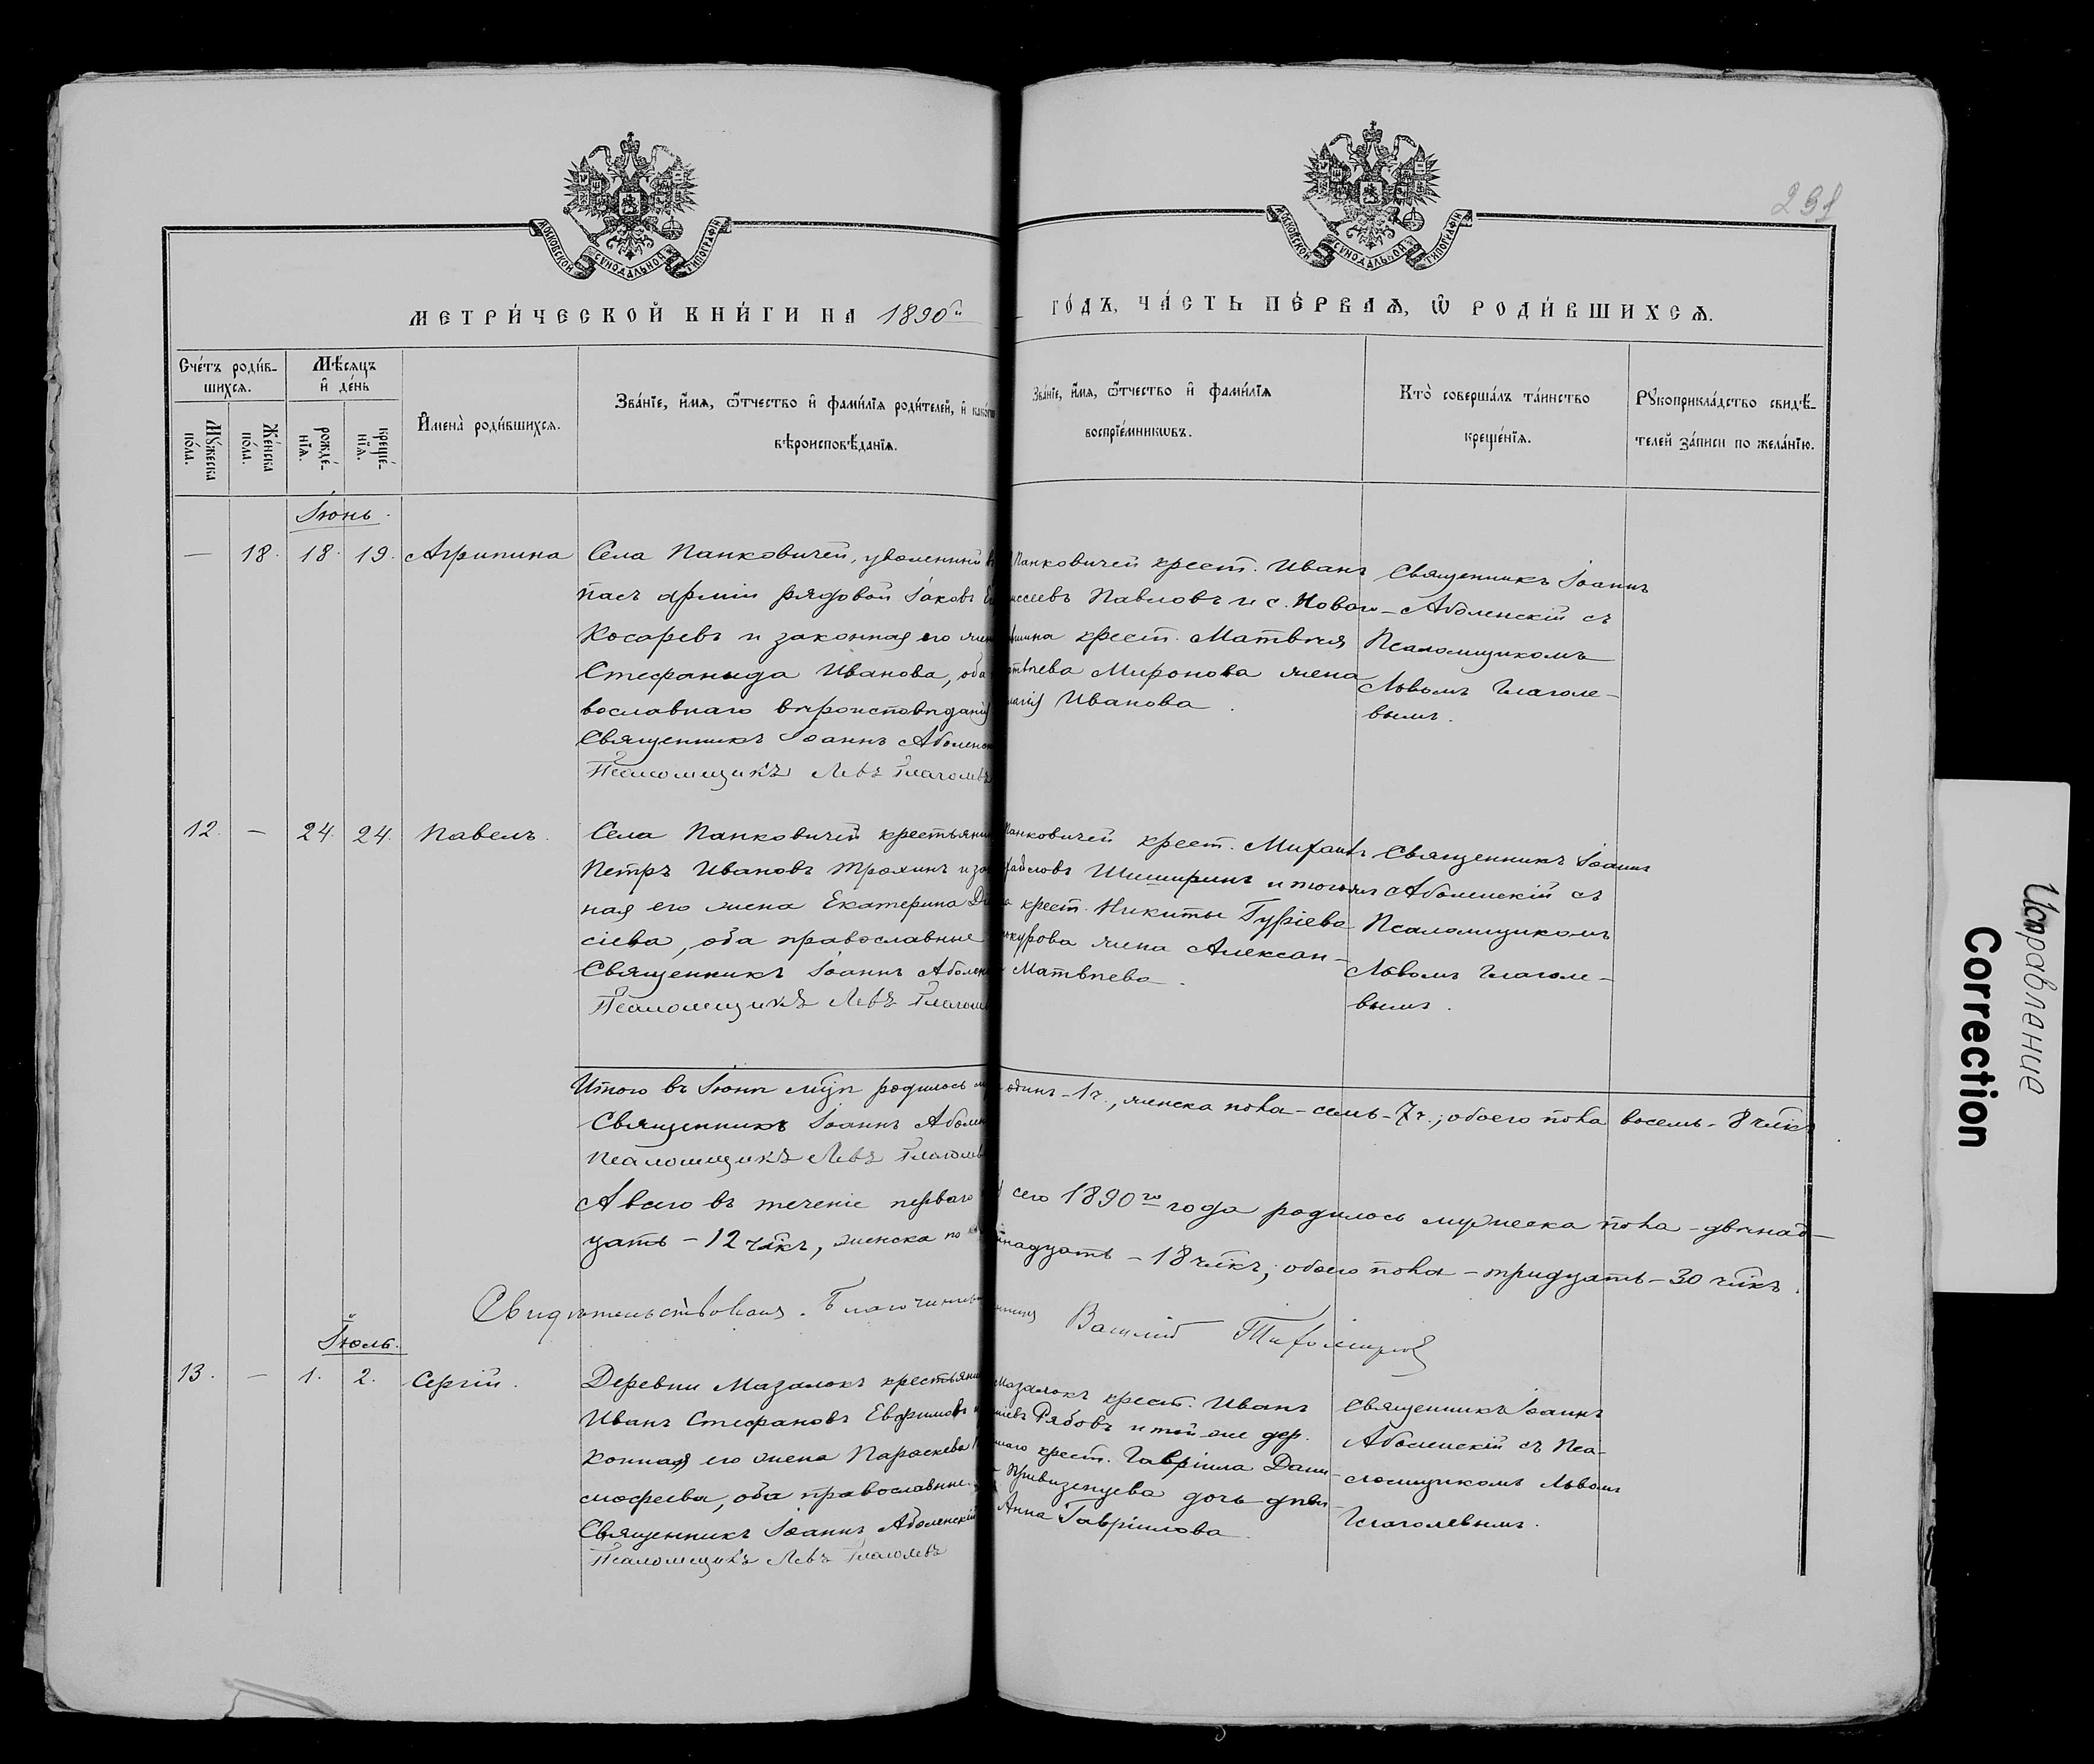 291
МОСКОВСКОЙ СУНОДАЛЬНОЙ ТИПОГРАФІИ
МОСКОВСКОЙ СУНОДАЛЬНОЙ ТИПОГРАФІИ
МЕТРИ́ЧЕСКОЙ КНИ́ГИ НА 1890й
ГО́ДЪ, ЧА́СТЬ ПЕ́РВАѦ, Ѿ РОДИ́ВШИХСѦ.
Сче́тъ роди́в-
шихсѧ.
Мѣ́сяцъ
и҆ де́нь
Мꙋ́жеска
по́ла.
Же́нска
по́ла.
рожде́-
нїѧ.
креще́-
нїѧ.
И҆мена̀ роди́вшихсѧ.
Зва́нїе, и҆́мѧ, ѻ҆́тчество и҆ фами́лїѧ роди́телей, и҆ како́гѡ
вѣроисповѣ́данїѧ.
Зва́нїе, и҆́мѧ, ѻ҆́тчество и҆ фами́лїѧ
воспрїе́мникѡвъ.
Кто̀ соверша́лъ та́инство
креще́нїѧ.
Рꙋкоприкла́дство свидѣ́-
телей за́писи по жела́нїю.
Іюнь.
— 18. 18. 19. Агрипина
Села Панковичей, уволенный въ
пасъ арміи рядовой Іаковъ
Косаревъ и законная его жен
Стефанида Иванова, оба
вославнаго вѣроисповѣданія
Священникъ Іоаннъ Аболенск
Псаломщикъ Левъ Глаголевъ
Панковичей крест. Иванъ
Павловъ и с. Новаго
крест. Матвѣя
Миронова жена
Иванова.
Священникъ Іоаннъ
Аболенскій съ
Псаломщикомъ
Львомъ Глаголе-
вымъ.
12. — 24. 24. Павелъ.
Села Панковичей крестьянинъ
Петръ Ивановъ Трохинъ и зак
ная его жена Екатерина
сіева, оба православные
Священникъ Іоаннъ Аболенск
Псаломщикъ Левъ Глаголев
Панковичей крест. Михаилъ
Шиширинъ и тогоже
крест. Никиты Гуріева
жена Алексан-
Матвѣева.
Священникъ Іоаннъ
Аболенскій съ
Псаломщикомъ
Львомъ Глаголе-
вымъ.
Итого въ Іюнѣ мцѣ родилось
одинъ - 1 ч., женска пола - семь - 7 ч.; обоего пола восемь - 8 члкъ
Священникъ Іоаннъ Аболен
Псаломщикъ Левъ Глаголев
А всего въ теченіе перваго
сего 1890го года родилось мужеска пола - двѣнад-
цать - 12 члкъ, женска по
надцать - 18 члкъ; обоего пола - тридцать - 30 члкъ.
Свидѣтельствовалъ. Благочинный
Василій Тихомировъ
Іюль.
13. — 1. 2. Сергій.
Деревни Мазалокъ крестьянин
Иванъ Стефановъ Евфимовъ и
конная его жена Параскева
моѳеева, оба православные.
Священникъ Іоаннъ Аболенскій
Псаломщикъ Левъ Глаголевъ
Мазалокъ крест. Иванъ
Рябовъ и той же дер.
крест. Гавріила Дани-
Привизенцева дочь дѣви
Анна Гавріилова.
Священникъ Іоаннъ
Аболенскій съ Пса-
ломщикомъ Львомъ
Глаголевымъ.
Исправление
Correction